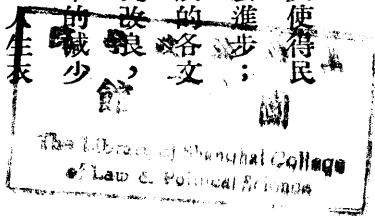 使得民
進步;
的各文
改良,
的減少
人生衣
圖
館
The Library of Shanghai College
of Law & Political Science